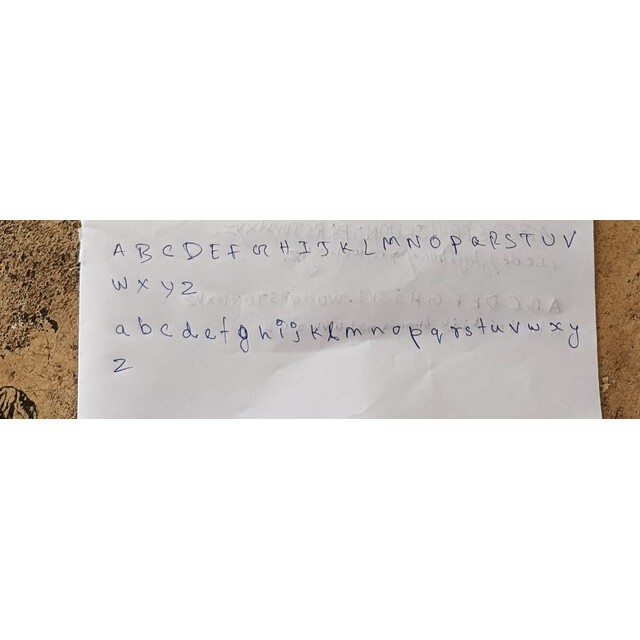 A B C D E F G H I J K L M N O P Q R S T U V
W X Y Z
a b c d e f g h i j k l m n o p q r s t u v w x y
z